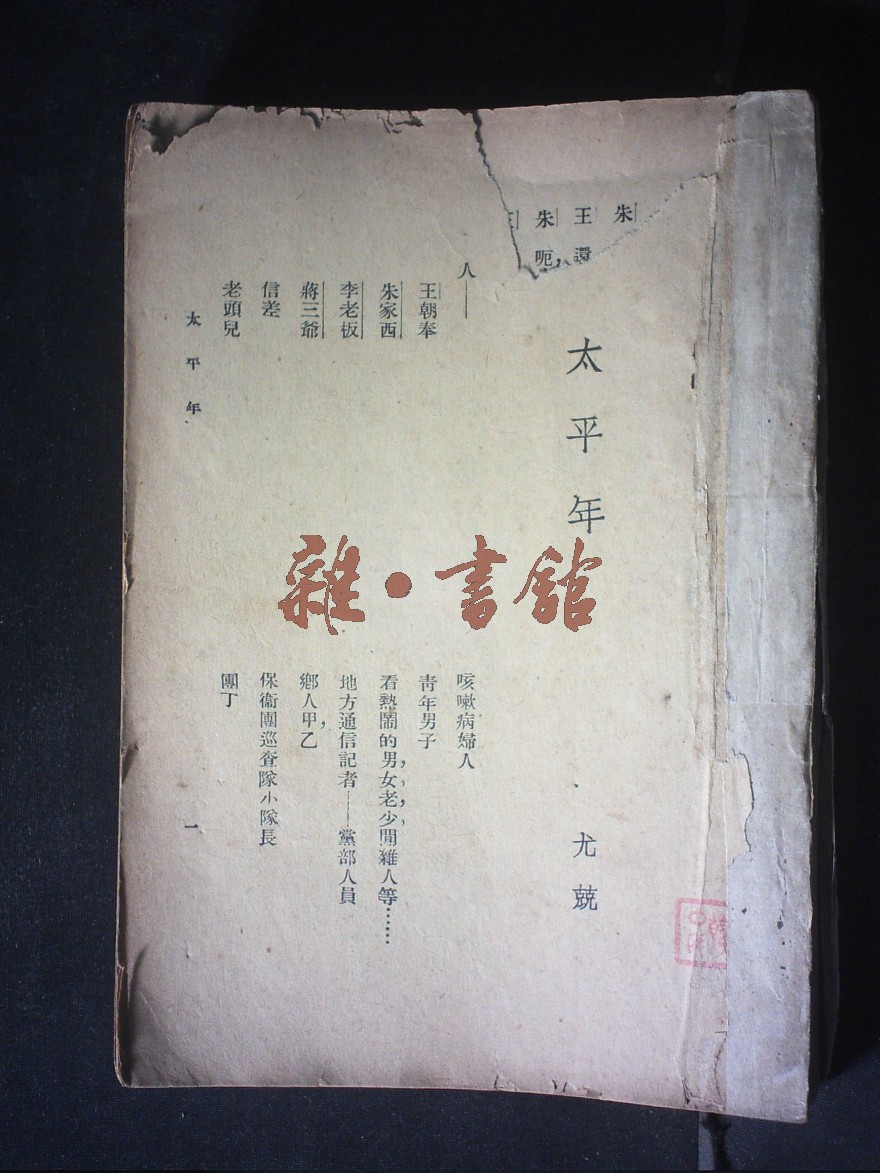 朱
王　還
朱　呃，
太平年
尤兢
人——
王朝奉
朱家西
李老板
蔣三爺
信差
老頭兒
咳嗽病婦人
青年男子
看熱鬧的男，女，老，少，閒雜人等……
地方通信記者——黨部人員
鄉人甲，乙
保衞團巡查隊小隊長
團丁
太平年
一
雜·書館